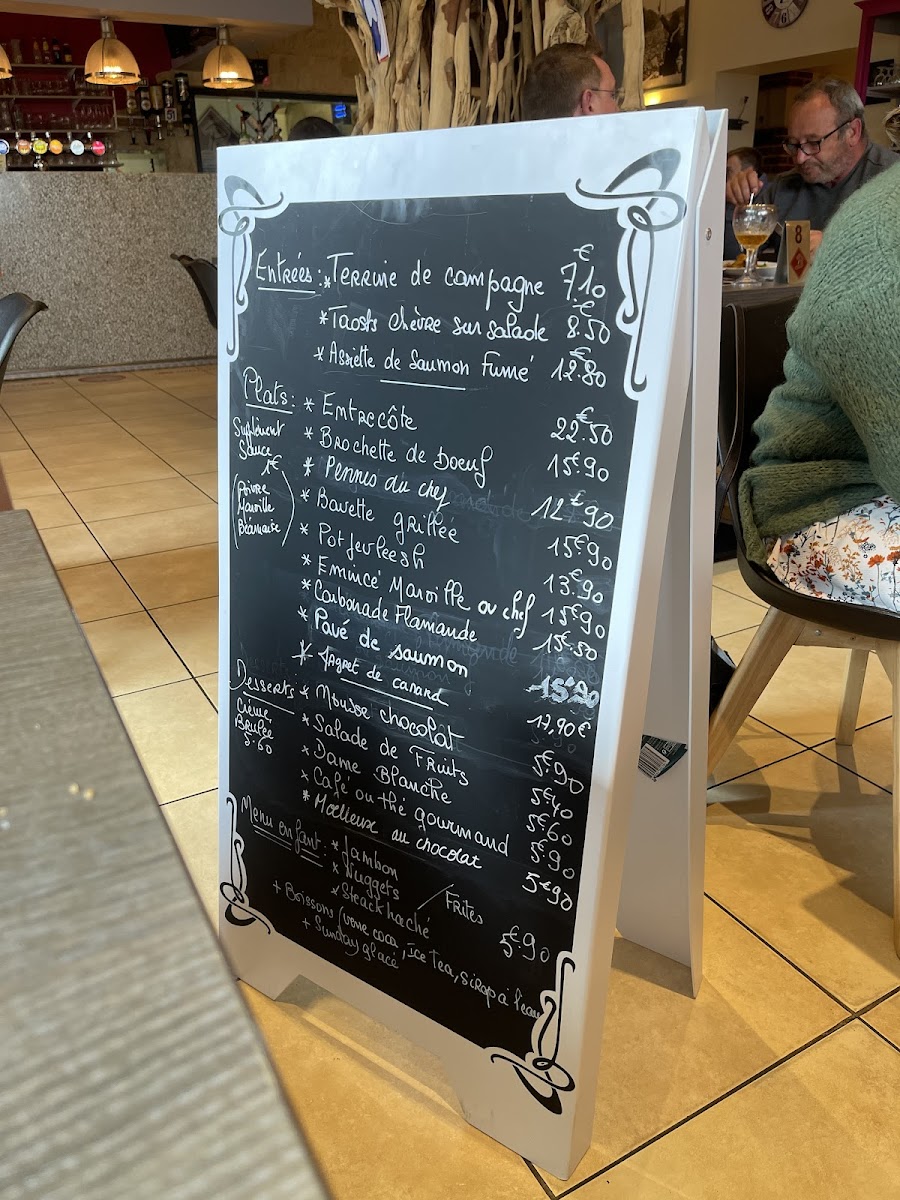 Entrées : * Terrine de campagne 7€10
* Taosts chèvre sur salade 8€.50
* Assiette de Saumon Fumé 12€.80
Plats : * Entrecôte 22€.50
* Brochette de boeuf 15€.90
* Pennes du chef 12€90
* Bavette grillée 15€90
* Potjevleesh 13€90
* Emincé Maroille ou chef 15€90
* Carbonade Flamande 15€.50
* Pavé de saumon 15€90
* Magret de canard 17,90€
Suplément
Sauce
1€
(Poivre
Maroille
Béarnaise)
Desserts : * Mousse chocolat 5€90
* Salade de Fruits 5€40
* Dame Blanche 5€60
* Café ou thé gourmand 5€90
* Moelleux au chocolat 5€90
Crème
Brulée
5.60
Menu enfant : * Jambon
* Nuggets
* Steack haché / Frites 5€90
+ Boissons (verre coca, Ice tea, sirop à l'eau
+ Sunday glacé
8